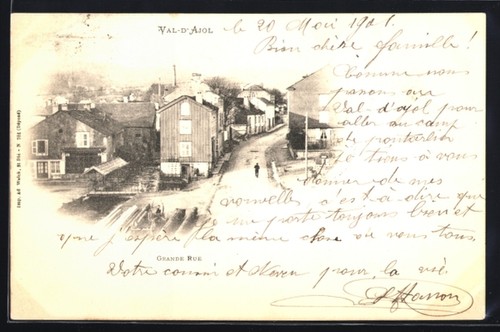 VAL-D'AJOL
le 20 Mai 1901.
Bien chère famille!
Comme nous
passons au
Val-d'ajol pour
aller au camp
de pontarlier
Je tiens à vous
donner de mes
nouvelles c'est-à-dire que
je me porte toujours bien et
que j'espère la même chose de vous tous.
GRANDE RUE
Votre cousin et Neveu pour la vie.
Imp. Ad Weick, St Dié - N 152 (Déposé)